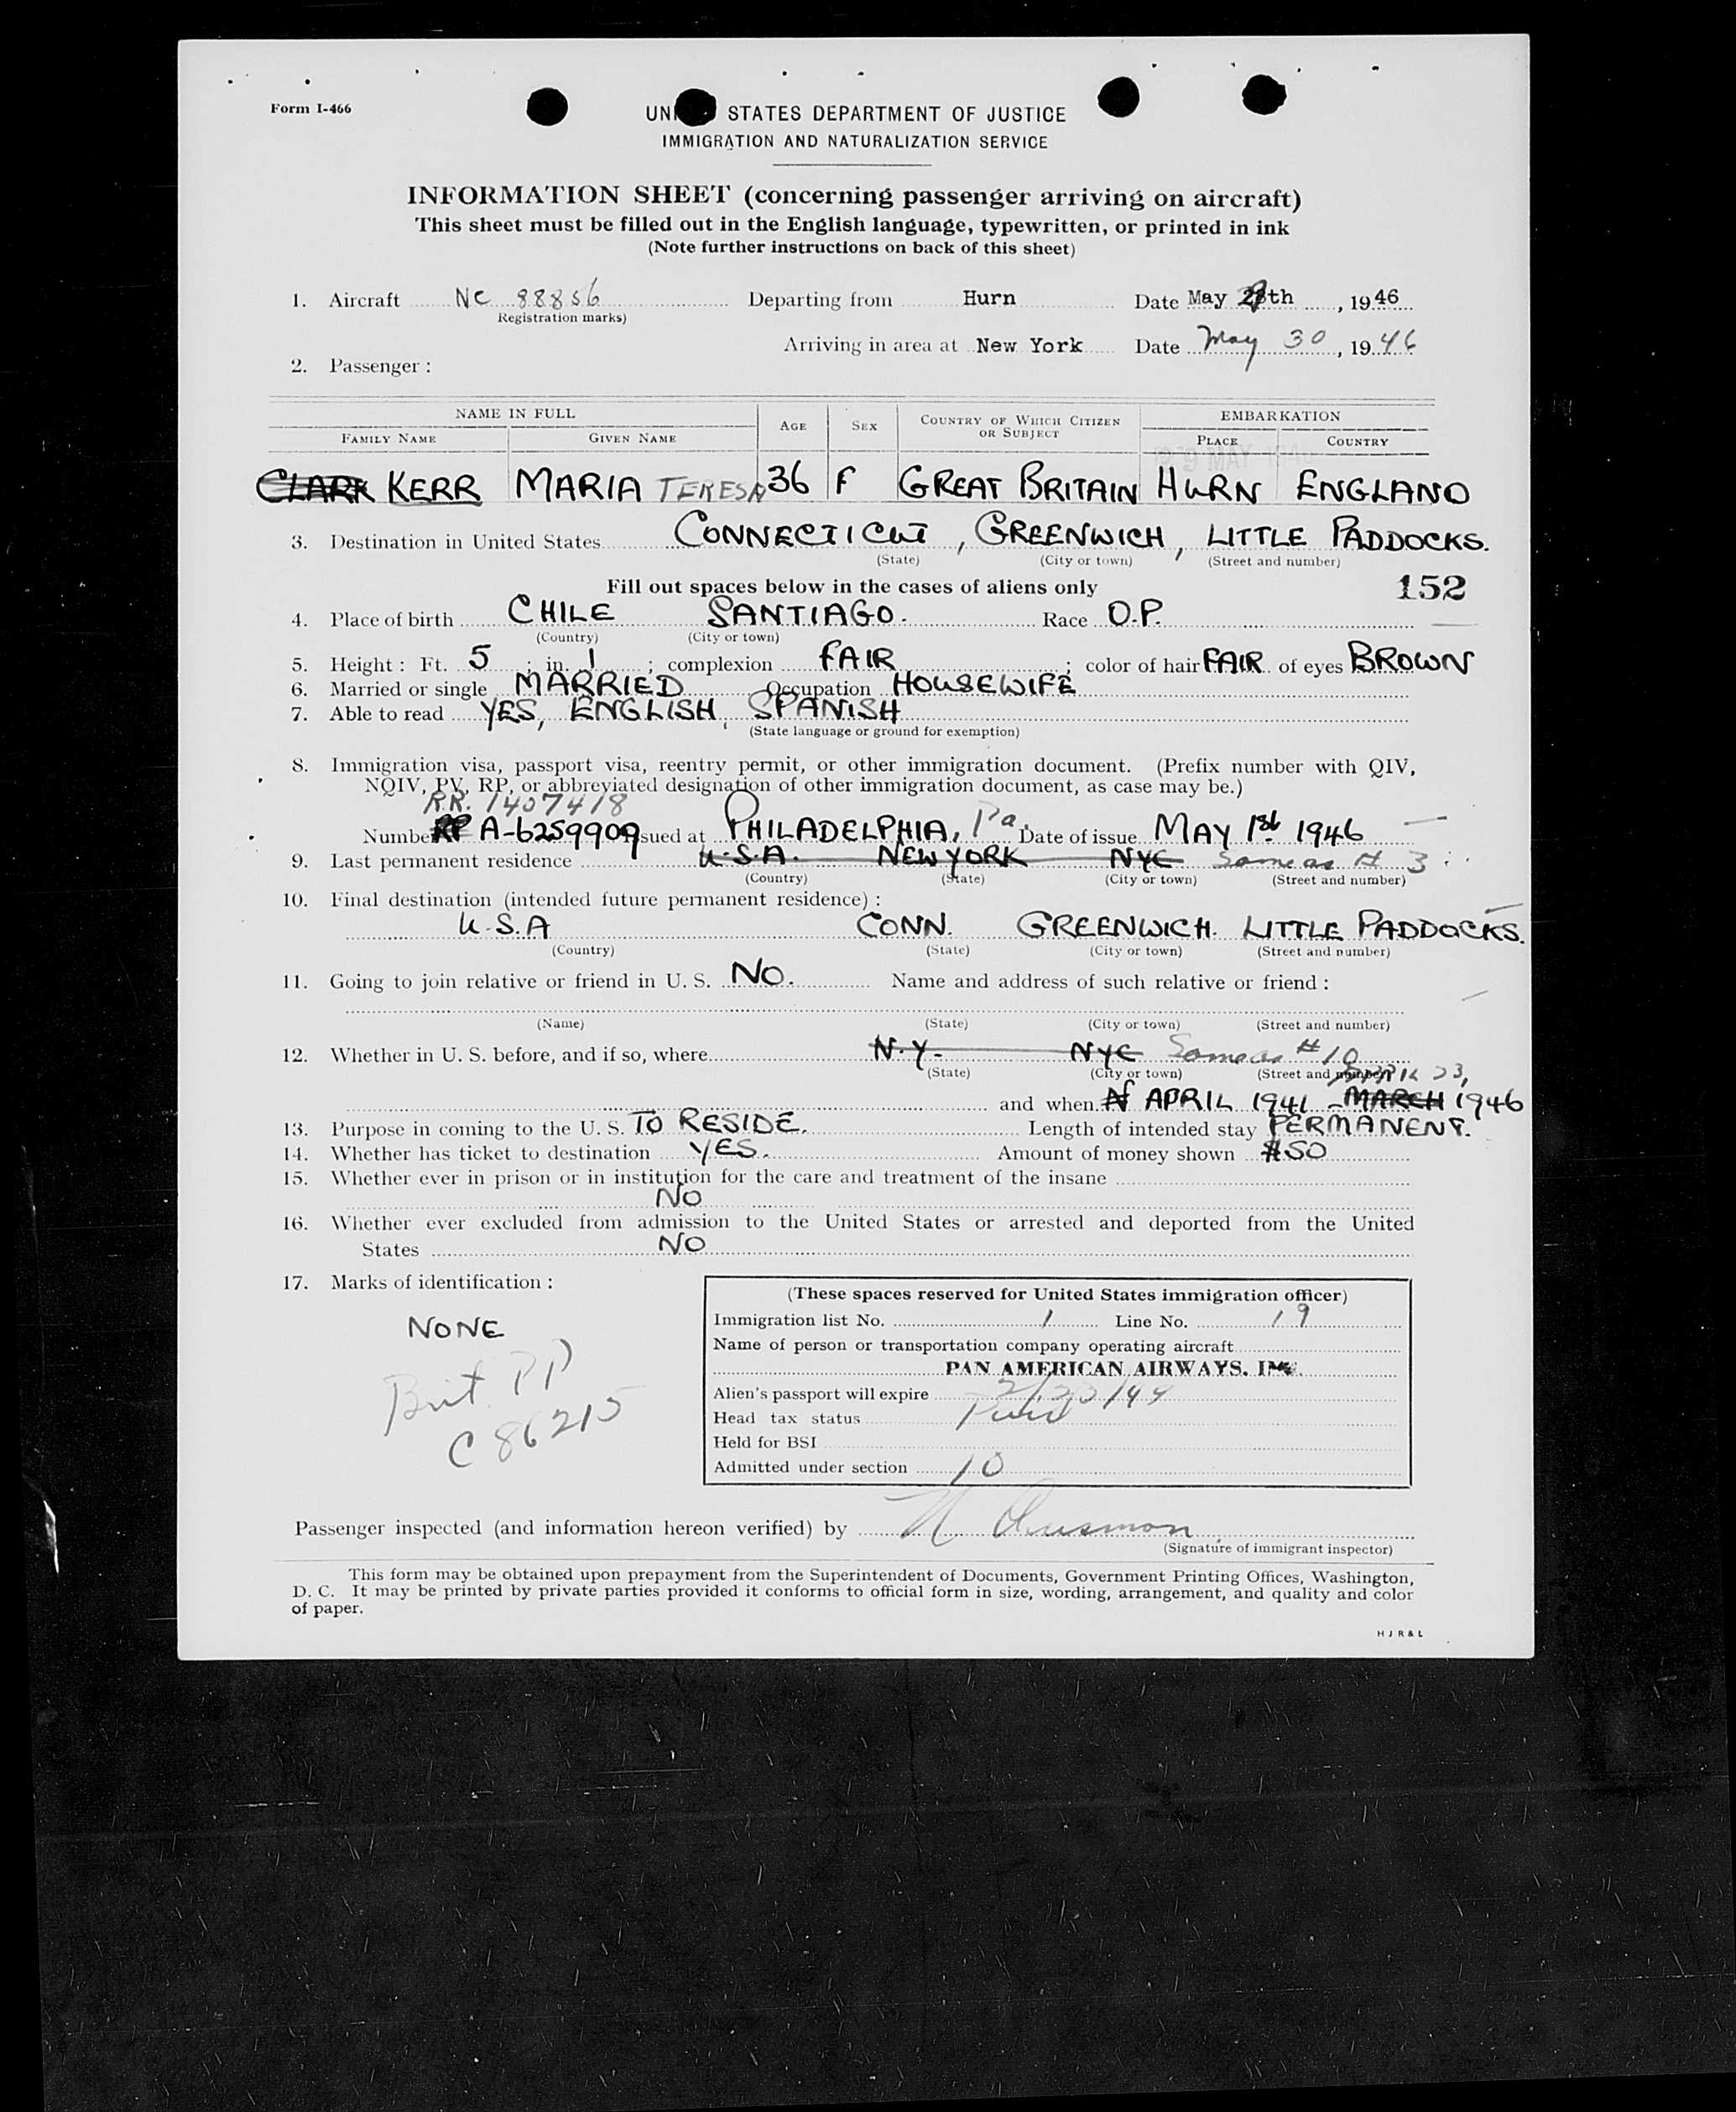 Form I-466
UNI STATES DEPARTMENT OF JUSTICE
IMMIGRATION AND NATURALIZATION SERVICE
INFORMATION SHEET (concerning passenger arriving on aircraft)
This sheet must be filled out in the English language, typewritten, or printed in ink
(Note further instructions on back of this sheet)
1. Aircraft NC 88856 Departing from Hurn Date May 28th, 1946
(Registration marks)
Arriving in area at New York Date May 30, 1946
2. Passenger:
NAME IN FULL AGE SEX COUNTRY OF WHICH CITIZEN OR SUBJECT EMBARKATION
FAMILY NAME GIVEN NAME PLACE COUNTRY
9 MAY
CLARK KERR MARIA TERESA 36 F GREAT BRITAIN HURN ENGLAND
3. Destination in United States CONNECTICUT, GREENWICH, LITTLE PADDOCKS.
(State) (City or town) (Street and number)
Fill out spaces below in the cases of aliens only 152
4. Place of birth CHILE SANTIAGO. Race O.P.
(Country) (City or town)
5. Height: Ft. 5; in. 1; complexion FAIR; color of hair FAIR of eyes BROWN
6. Married or single MARRIED Occupation HOUSEWIFE
7. Able to read YES, ENGLISH, SPANISH
(State language or ground for exemption)
8. Immigration visa, passport visa, reentry permit, or other immigration document. (Prefix number with QIV,
NQIV, PV, RP, or abbreviated designation of other immigration document, as case may be.)
R.R. 1407418
Number RP A-6259909 issued at PHILADELPHIA, Pa. Date of issue MAY 1st 1946
9. Last permanent residence U.S.A. NEW YORK NYC Same as # 3
(Country) (State) (City or town) (Street and number)
10. Final destination (intended future permanent residence):
U.S.A CONN. GREENWICH. LITTLE PADDOCKS.
(Country) (State) (City or town) (Street and number)
11. Going to join relative or friend in U. S. NO. Name and address of such relative or friend:
(Name) (State) (City or town) (Street and number)
12. Whether in U. S. before, and if so, where N.Y. NYC Same as #10
(State) (City or town) (Street and number) APRIL 23,
and when APRIL 1941 - MARCH 1946
13. Purpose in coming to the U. S. TO RESIDE. Length of intended stay PERMANENT.
14. Whether has ticket to destination YES. Amount of money shown $50
15. Whether ever in prison or in institution for the care and treatment of the insane
NO
16. Whether ever excluded from admission to the United States or arrested and deported from the United
States NO
17. Marks of identification:
NONE
Brit PP
C 86215
(These spaces reserved for United States immigration officer)
Immigration list No. 1 Line No. 19
Name of person or transportation company operating aircraft
PAN AMERICAN AIRWAYS, INC.
Alien's passport will expire
Head tax status Paid
Held for BSI
Admitted under section 10
Passenger inspected (and information hereon verified) by
(Signature of immigrant inspector)
This form may be obtained upon prepayment from the Superintendent of Documents, Government Printing Offices, Washington,
D. C. It may be printed by private parties provided it conforms to official form in size, wording, arrangement, and quality and color
of paper.
H J R & L